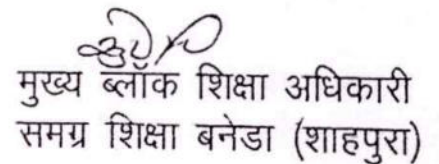 मुख्य ब्लॉक शिक्षा अधिकारी
समग्र शिक्षा बनेडा (शाहपुरा)